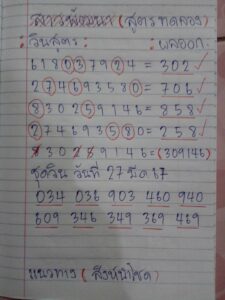 ลาวพัฒนา (สูตรทดลอง)
: วินสูตร : : ผลออก :
618037924 = 302 ✓
274693580 = 706 ✓
830259146 = 858 ✓
274693580 = 258 ✓
830259146 = (309146)
ชุดวิน วันที่ 27 มีค 67
034 036 903 460 940
609 346 349 369 469
แนวทาง ( สิงห์นำโชค)